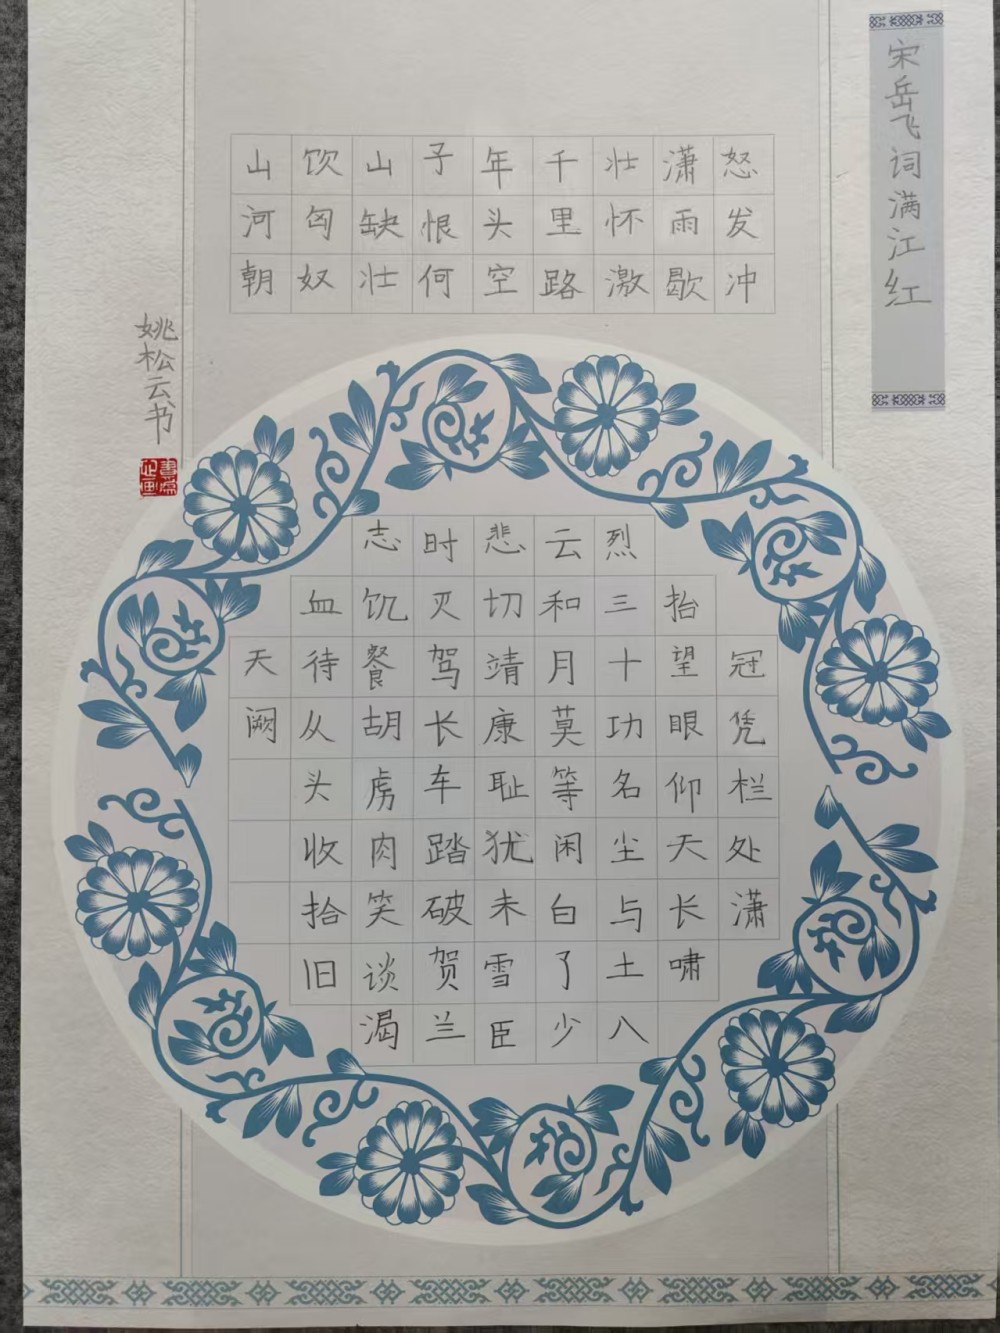 宋岳飞词满江红
怒发冲冠凭栏处潇
潇雨歇抬望眼仰天长啸
壮怀激烈三十功名尘与土八
千里路云和月莫等闲白了少
年头空悲切靖康耻犹未雪臣
子恨何时灭驾长车踏破贺兰
山缺壮志饥餐胡虏肉笑谈渴
饮匈奴血待从头收拾旧
山河朝天阙
姚松云书